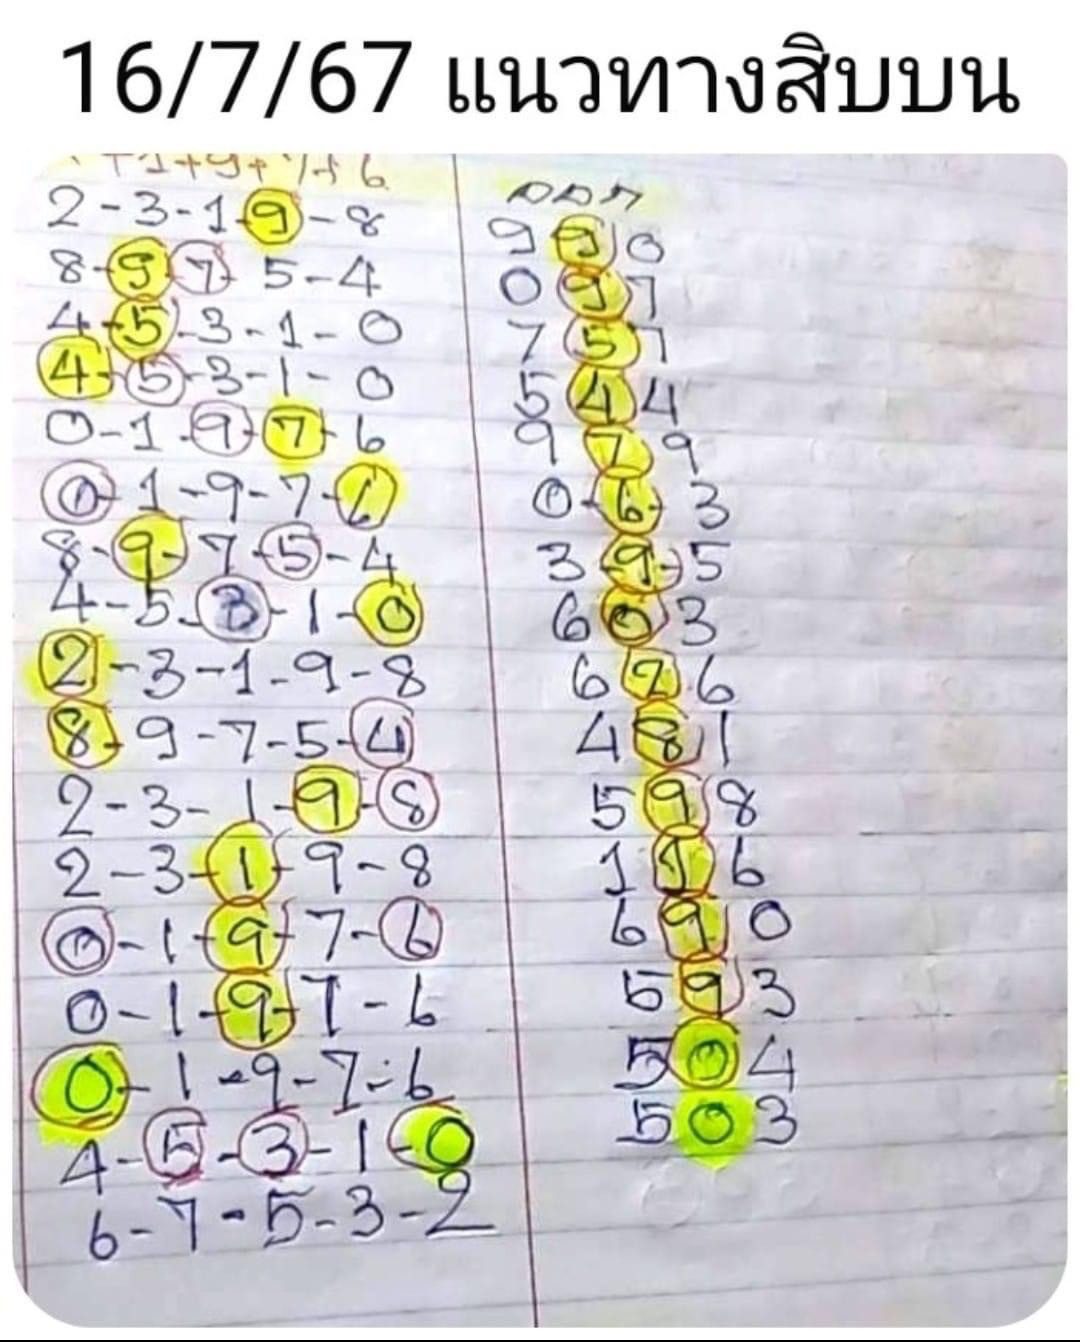 16/7/67 แนวทางสิบบน
2-3-1-9-8
8-9-7-5-4
4-5-3-1-0
4-5-3-1-0
0-1-9-7-6
0-1-9-7-6
8-9-7-5-4
4-5-3-1-0
2-3-1-9-8
8-9-7-5-4
2-3-1-9-8
2-3-1-9-8
0-1-9-7-6
0-1-9-7-6
0-1-9-7-6
4-5-3-1-0
6-7-5-3-2
ออก
990
097
757
544
979
0-6-3
39-5
603
626
481
598
116
690
593
504
503